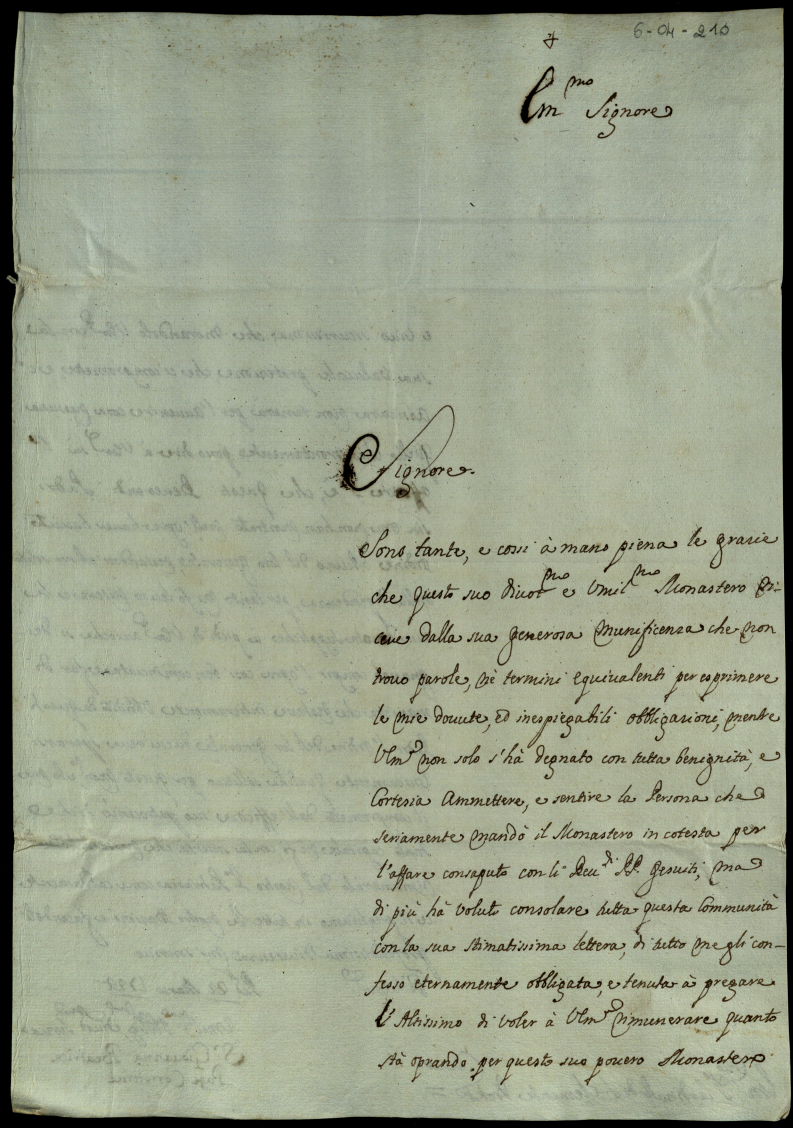 6-04-210
Em.mo Signore
Signore.
Sono tante, e cossi à mano piena le grazie
che questo suo divot.mo e Umil.mo Monastero ri-
ceve dalla sua generosa munificenza che non
trovo parole, nè termini equivalenti per esprimere
le mie dovute, ed inespiegabili obbligazioni, mentre
V'Em.a non solo s'hà degnato con tutta benignità, e
Cortesia Ammettere, e sentire la Persona che
seriamente mandò il Monastero in cotesta per
l'affare consaputo con li Rev.di PP. Gesuiti, ma
di più hà voluto consolare tutta questa Communità
con la sua stimatissima lettera, di tutto me gli con-
fesso eternamente obbligata, e tenuta à pregare
l'Altissimo di voler à V'Em.a rimunerare quanto
stà oprando per questo suo povero Monastero